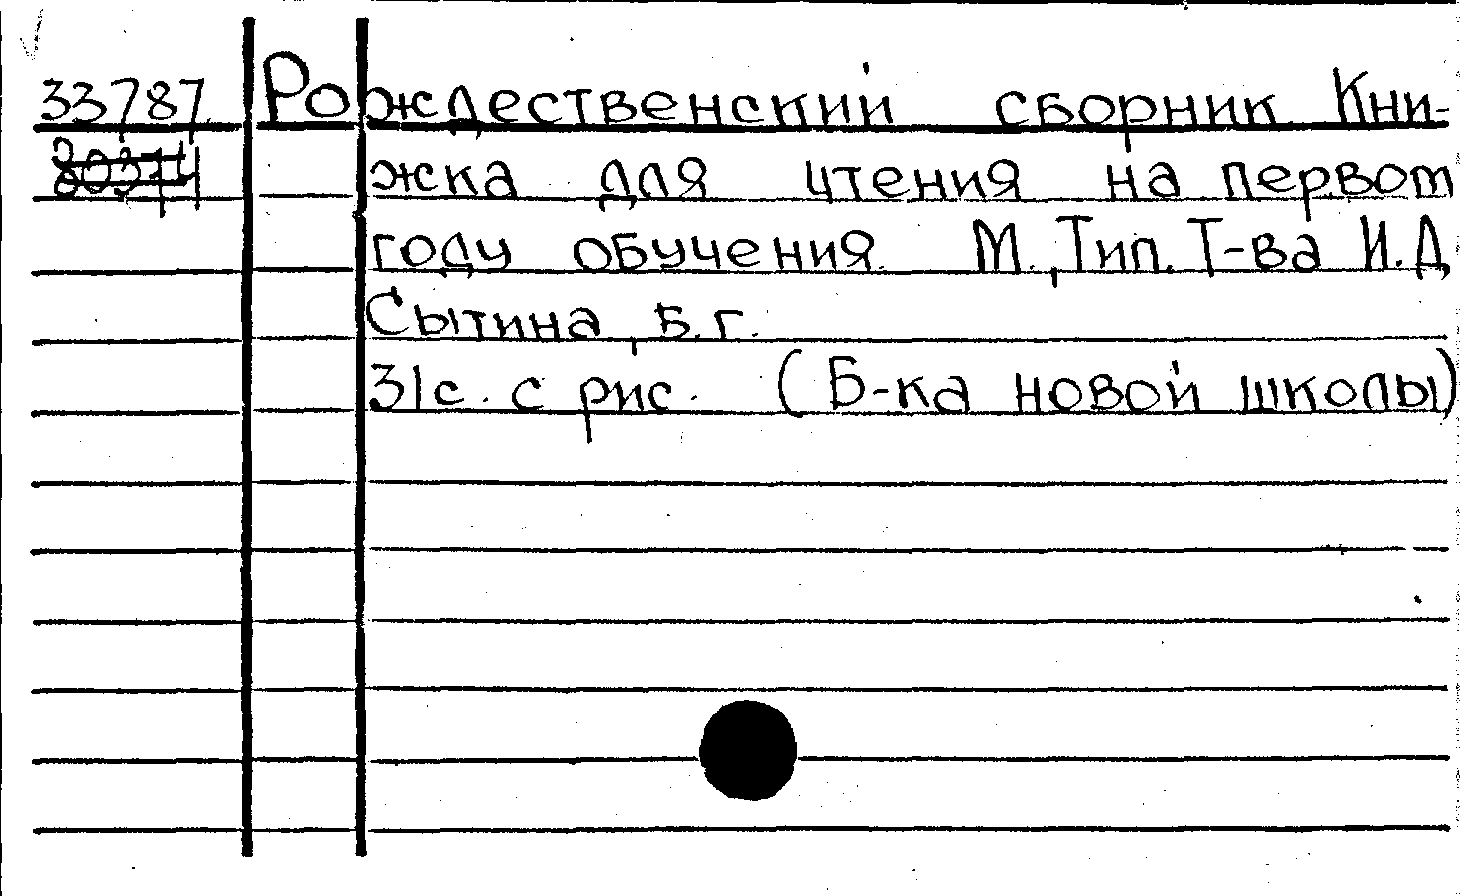 33787 Рождественский сборник Кни-
80374 жка для чтения на первом
году обучения. М., Тип. Т-ва И.Д
Сытина, б.г.
31с. с рис. (Б-ка новой школы)